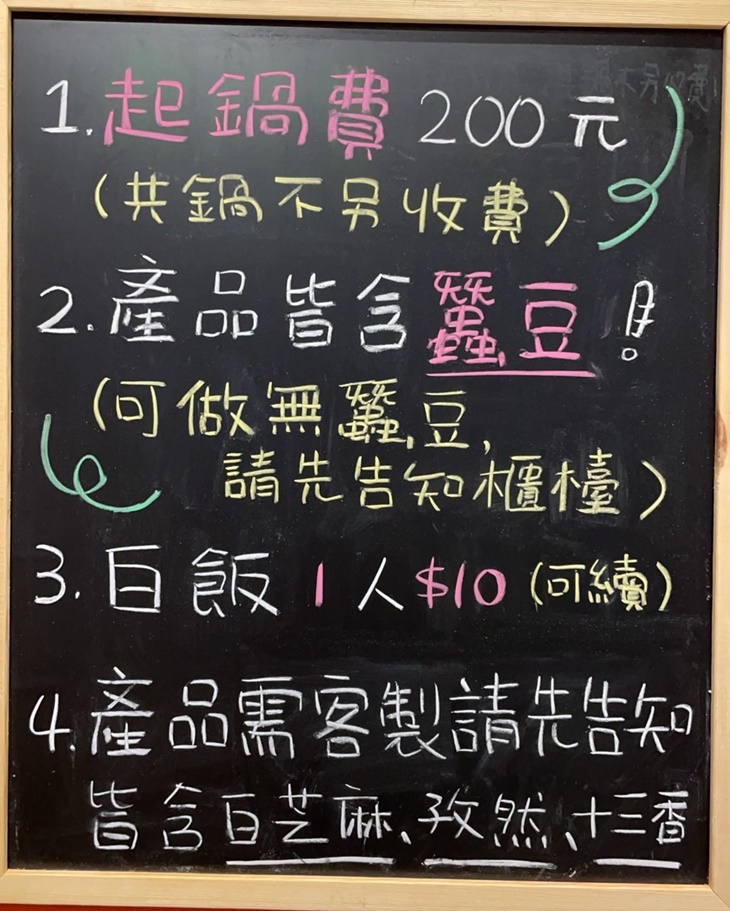 1. 起鍋費 200元
(共鍋不另收費)
2. 產品皆含蠶豆!
(可做無蠶豆,
請先告知櫃檯)
3. 白飯 1人$10 (可續)
4. 產品需客製請先告知
皆含白芝麻、孜然、十三香